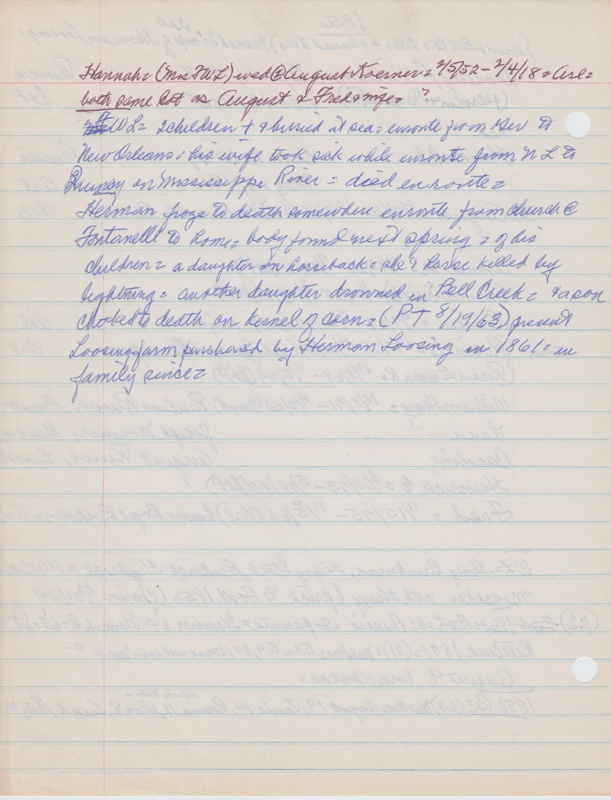 Hannah = (Mrs FWL) wed @ August Koerner = 2/5/52 - 2/4/18 = are =
both same lot as August & Fredemge = ?
WL = 2 children + 2 buried at sea = enroute from Ger to
New Orleans = his wife took sick while enroute from N L to
Quincy on Mississippi River = died enroute =
Herman froze to death somewhere enroute from church @
Fontanelle to home = body found next spring = of his
children = a daughter on horseback = she & horse killed by
lightning = another daughter drowned in Bell Creek = & a son
choked to death on kernel of corn = (PT 8/19/63) present
Loosing farm purchased by Herman Loosing in 1861 = in
family since =